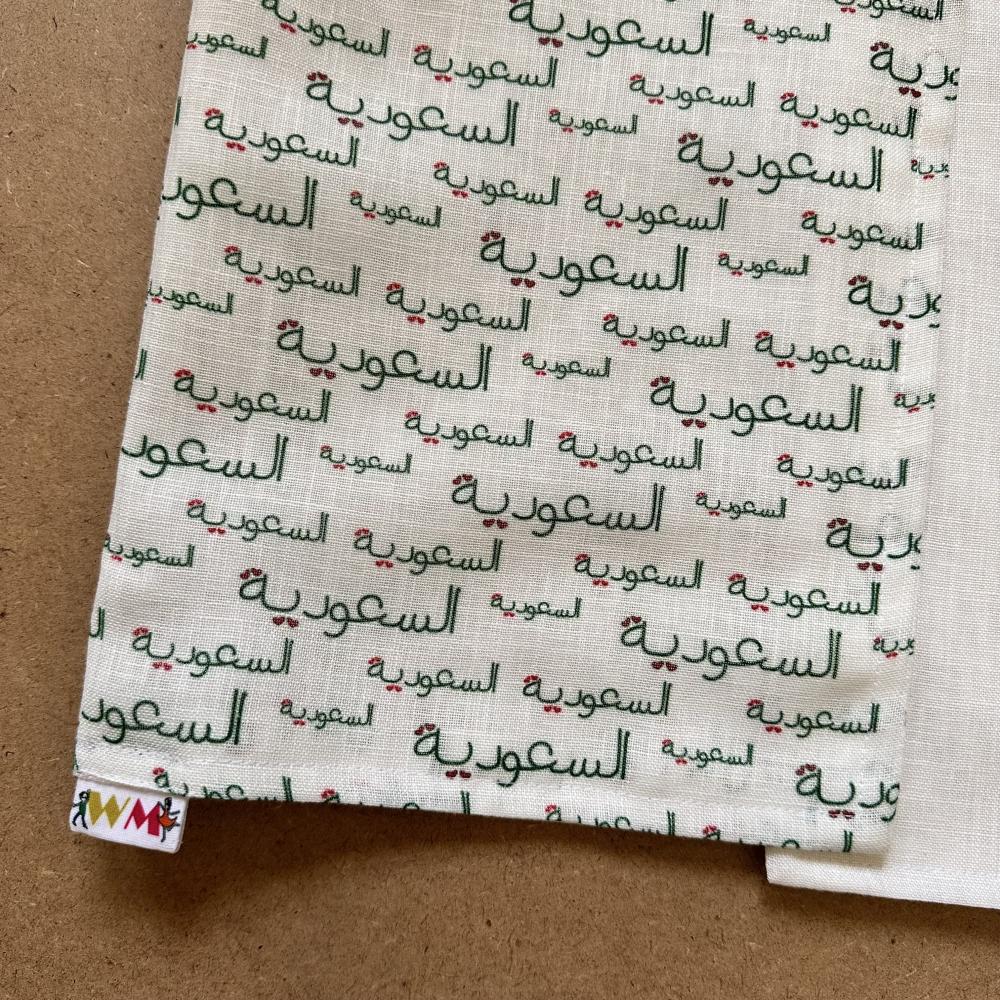 السعودية السعودية السعودية
السعودية السعودية
السعودية السعودية السعودية
السعودية السعودية السعودية
السعودية السعودية
السعودية السعودية السعودية
السعودية السعودية
السعودية السعودية
السعودية السعودية السعودية
السعودية السعودية
السعودية السعودية السعودية
السعودية السعودية السعودية
السعودية السعودية
السعودية السعودية السعودية
السعودية السعودية
السعودية السعودية السعودية
السعودية السعودية السعودية
السعودية السعودية
WM